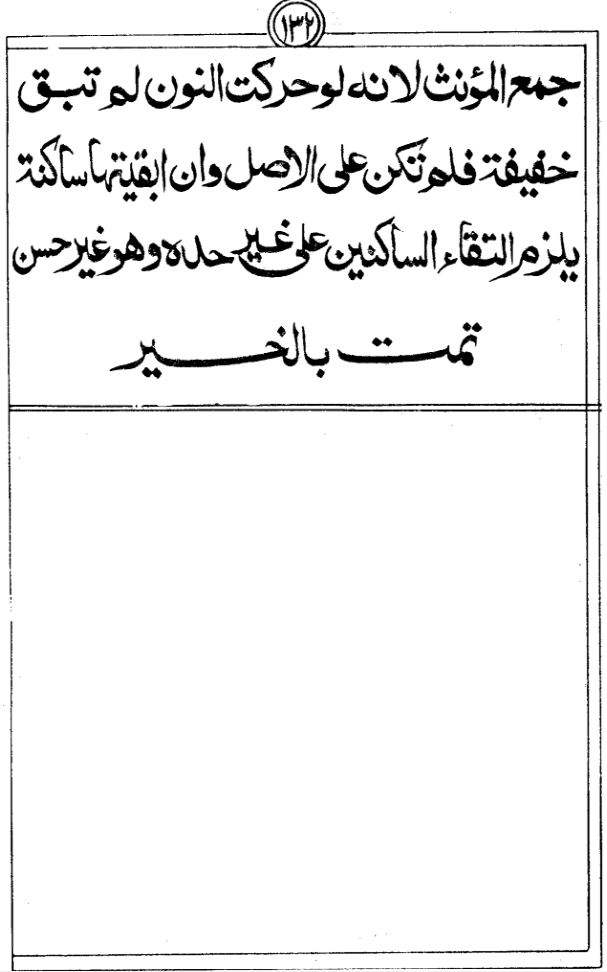 ١٣٢
جمع المؤنث لانه لو حركت النون لم تبق
خفيفة فلم تكن على الاصل وان ابقيتها ساكنة
يلزم التقاء الساكنين على غير حده وهو غير حسن
تمت بالخير